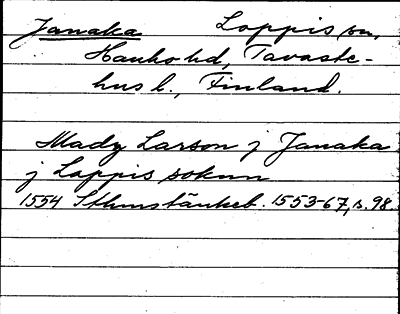 Janaka Loppis sn,
Hauho hd, Tavaste-
hus l., Finland.
Mady Larson j Janaka
j Loppis soknn
1554 Sthmstänkeb. 1553-67, s. 98.